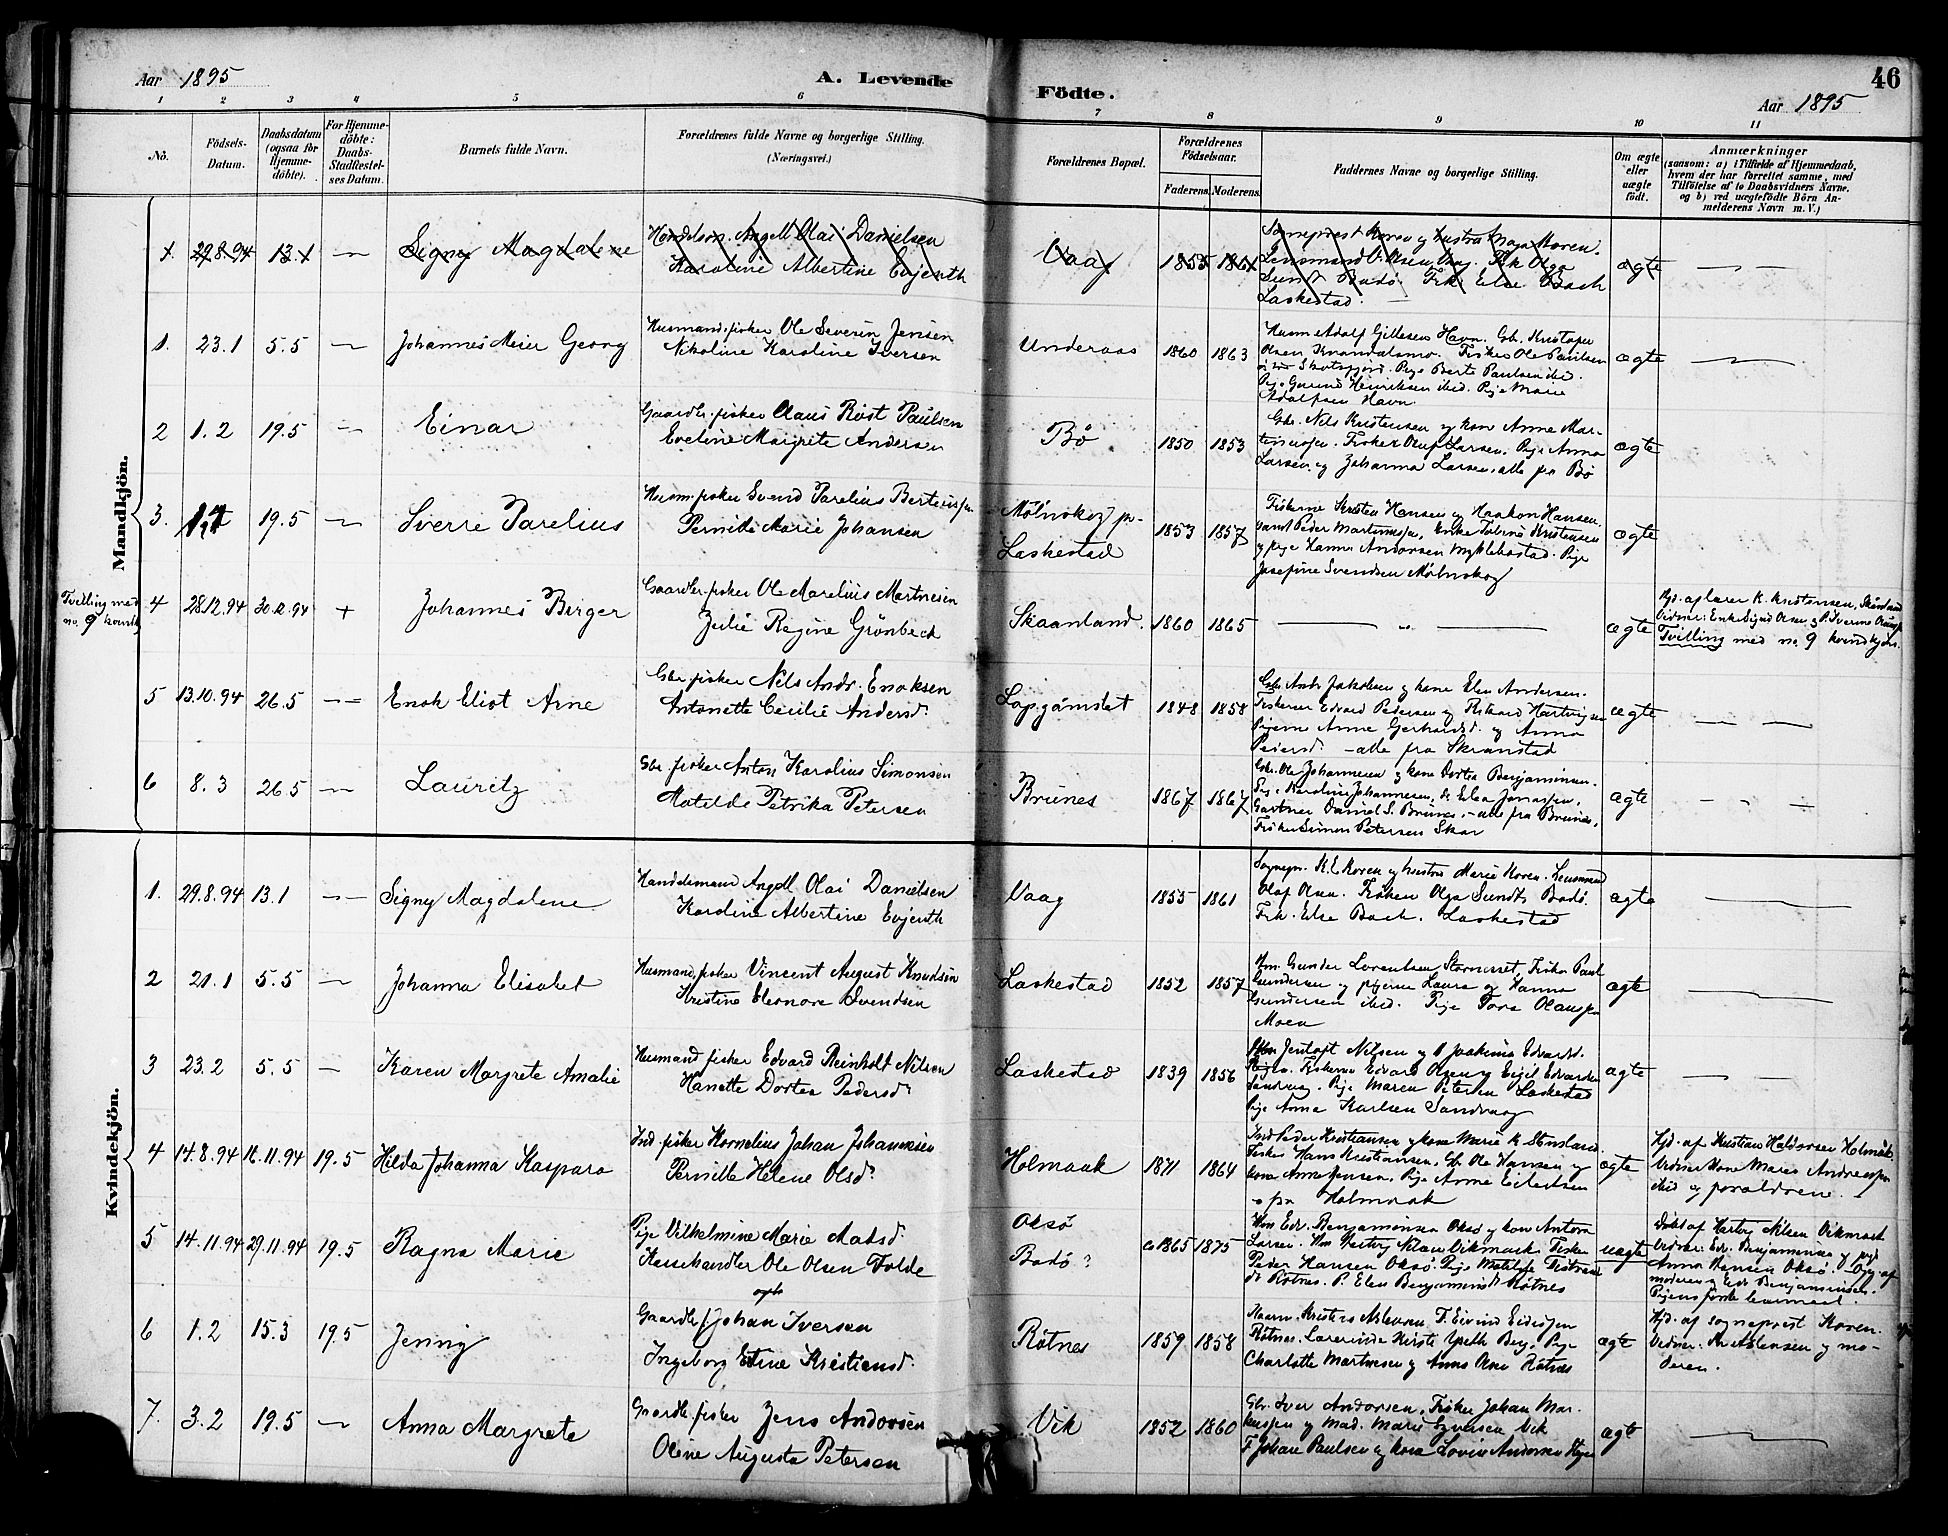 Aar 1895 A. Levende Födte. 46
Aar 1895
1 2 3 4 5 6 7 8 9 10 11
No.
Födsels-Datum.
Daabsdatum (ogsaa for Hjemme-döbte).
For Hjemme-döbte: Daabs-Stadfestel-ses Datum.
Barnets fulde Navn.
Forældrenes fulde Navne og borgerlige Stilling.
(Næringsvei.)
Forældrenes Bopæl.
Forældrenes Födselsaar.
Faderens. Moderens.
Faddernes Navne og borgerlige Stilling.
Om ægte eller uægte födt.
Anmærkninger
(saasom: a) i Tilfælde af Hjemmedaab,
hvem der har forrettet samme, med
Tilföielse af to Daabsvidners Navne.
og b) ved uægtefödte Börn An-
melderens Navn m. V.)
Mandkjön.
1. 29.8.94 13.1 — Signy Magdalene
Handelsm. Angell Olai Danielsen
Karoline Albertine Evjenth
Vaag 1855 1861
Sogneprest Koren og hustru
Lensmand Olsen
Sundt Bodø. Frk. Else Bach
Laskestad.
ægte
1. 23.1 5.5 — Johannes Meier Georg
Husmand. fisker Ole Severin Jensen
Nikoline Karoline Iversen
Underaas 1860 1863
Husm. Adolf Gillesen Havn. Gb. Kristofer
Olsen Fisker Ole Paulsen
Pige Berte Paulsen ibid.
Henriksen ibid. Pige Marie
Adolfsen Havn.
ægte
2 1.2 19.5 — Einar
Gaardbr. fisker Claus Røst Paulsen
Eveline Margrete Andersen
Bø 1850 1853
Gbr. Nils Kristensen og kone Anne Mar-
Fisker Larsen, Pige Anna
Larsen og Johanna Larsen, alle fra Bø
ægte
3. 19.5 — Sverre Parelius
Husm. fisker Svend Parelius
Pernille Marie Johansen
Mølnskog pr. Laskestad 1853 1857
Fiskerne Kristen Hansen og Haakon Hansen.
samt Peder Martinussen, Enke Kristensen
og pige Hanna Andersen Myklebostad. Pige
Josefine Svendsen Mølnskog
ægte
Tvilling med no. 9 kvindkj.
4 28.12.94 30.12.94 + Johannes Birger
Gaardbr. fisker Ole Marelius Martinsen
Julie Regine Grönbeck
Skaanland. 1860 1865 — " — ægte
Hjd. af lærer K. Kristensen, Skaanland
Vidner: Enke Olsen og
Tvilling med no. 9 kvindkjön.
5 13.10.94 26.5 — Enok Eliot Arne
Gbr. fisker Nils Andr. Enoksen
Antonette Cecilie Andersd.
1848 1858
Gbr. Andr. Jakobsen og kone Elen Andersen.
Fiskerne Edvard Pedersen og Rikard Hartvigsen
Pigerne Anne Gerhardsd. og Anna
Peiersd. – alle fra Skranstad
ægte
6 8.3 26.5 — Lauritz
Gbr. fisker Anton Karolius Simonsen
Matilde Petrika Petersen
Brunes 1867 1867
Gbr. Ole Johannesen og kone Dortea Benjaminsen.
Pige Karoline Johannesen,
Gartner Daniel S. Brunes, – alle fra Brunes,
Fisker Simon Petersen Skar
ægte
Kvindekjön.
1. 29.8.94 13.1 — Signy Magdalene
Handelsmand Angell Olai Danielsen
Karoline Albertine Evjenth
Vaag 1855 1861
Sognepr. K. E. Koren og hustru Marie Koren. Lensmand
Olaf Olsen. Frøken Olga Sundt, Bodø.
Frk. Else Bach. Laskestad
ægte
2 21.1 5.5 — Johanna Elisabet
Husmand, fisker Vincent August Knudsen
Kristine Eleonore Svendsen
Laskestad 1852 1857
Hm. Gunder Lorentsen Fisker Paul
Gundersen og pigerne Laura og Hanna
Gundersen ibid. Pige Tora
Moen
ægte
3 23.2 5.5 — Karen Margrete Amalie
Husmand fisker Edvard Reinholt Nilsen
Hanette Dortea Pedersd.
Laskestad 1839 1856
Jentoft Nilsen og Edvardsd.
Fiskerne Edvard Olsen og Eigil Edvardsen
Sandvag. Pige Maren Petersen Laskestad
Pige Anna Karlsen Sandvag
ægte
4 14.8.94 16.11.94 19.5 Hilda Johanna Kaspara
Ind. fisker Kornelius Johan Johannesen
Pernille Helene Olsd.
Holmaak 1871 1864
Ind. Peder Kristiansen og kone Marie K.
Fisker Hans Kristiansen, Gb. Ole Hansen og
kone Anne Jensen, Pige Anne Eilertsen
fra Holmaak
ægte
Hjd. af Kristian Haldorsen Holmåk.
Vidner Kone Maren Andreassen
ibid og forældrene.
5 14.11.94 29.11.94 19.5 Ragna Marie
Pige Vilhelmine Marie Matsd.
Ole Olsen Folde
Oksø
Bodø? 1865 1875
Hm. Edv. Benjaminsen Oksø og kone Antona
Larsen. Hm. Hartvig Nilsen Vikmark. Fisker
Peder Hansen Oksø. Pige Matilde
Røtnes. P. Elen Benjaminsd. Røtnes
uægte
Døbt af Hartvig Nilsen Vikmark
Vidner: Edv. Benjaminsen og pige
Anna Hansen Oksø. Opg. af
moderen og Edv Benjaminsen.
Pigens første leiermaal.
6 1.2 15.3 19.5 Jenny
Gaardbr. f Johan Iversen
Ingeborg Eline Kristiansd.
Røtnes 1859 1858
F. Eivind
Røtnes. Lærerinde Berg. Pige
Charlotte Martinesen og Anna Olsen Røtnes
ægte
Hjd. af sogneprest Koren.
Vidner: og mo-
deren.
7. 3.2 19.5 — Anna Margrete
Gaardb. fisker Jens Andorsen
Oline Augusta Petersen
Vik 1852 1860
Gbr. Iver Andorsen. Fisker Johan Mar-
kussen og Mad. Marie Iversen Vik
F Johan Paulsen og kone Lovise Andersen
ægte